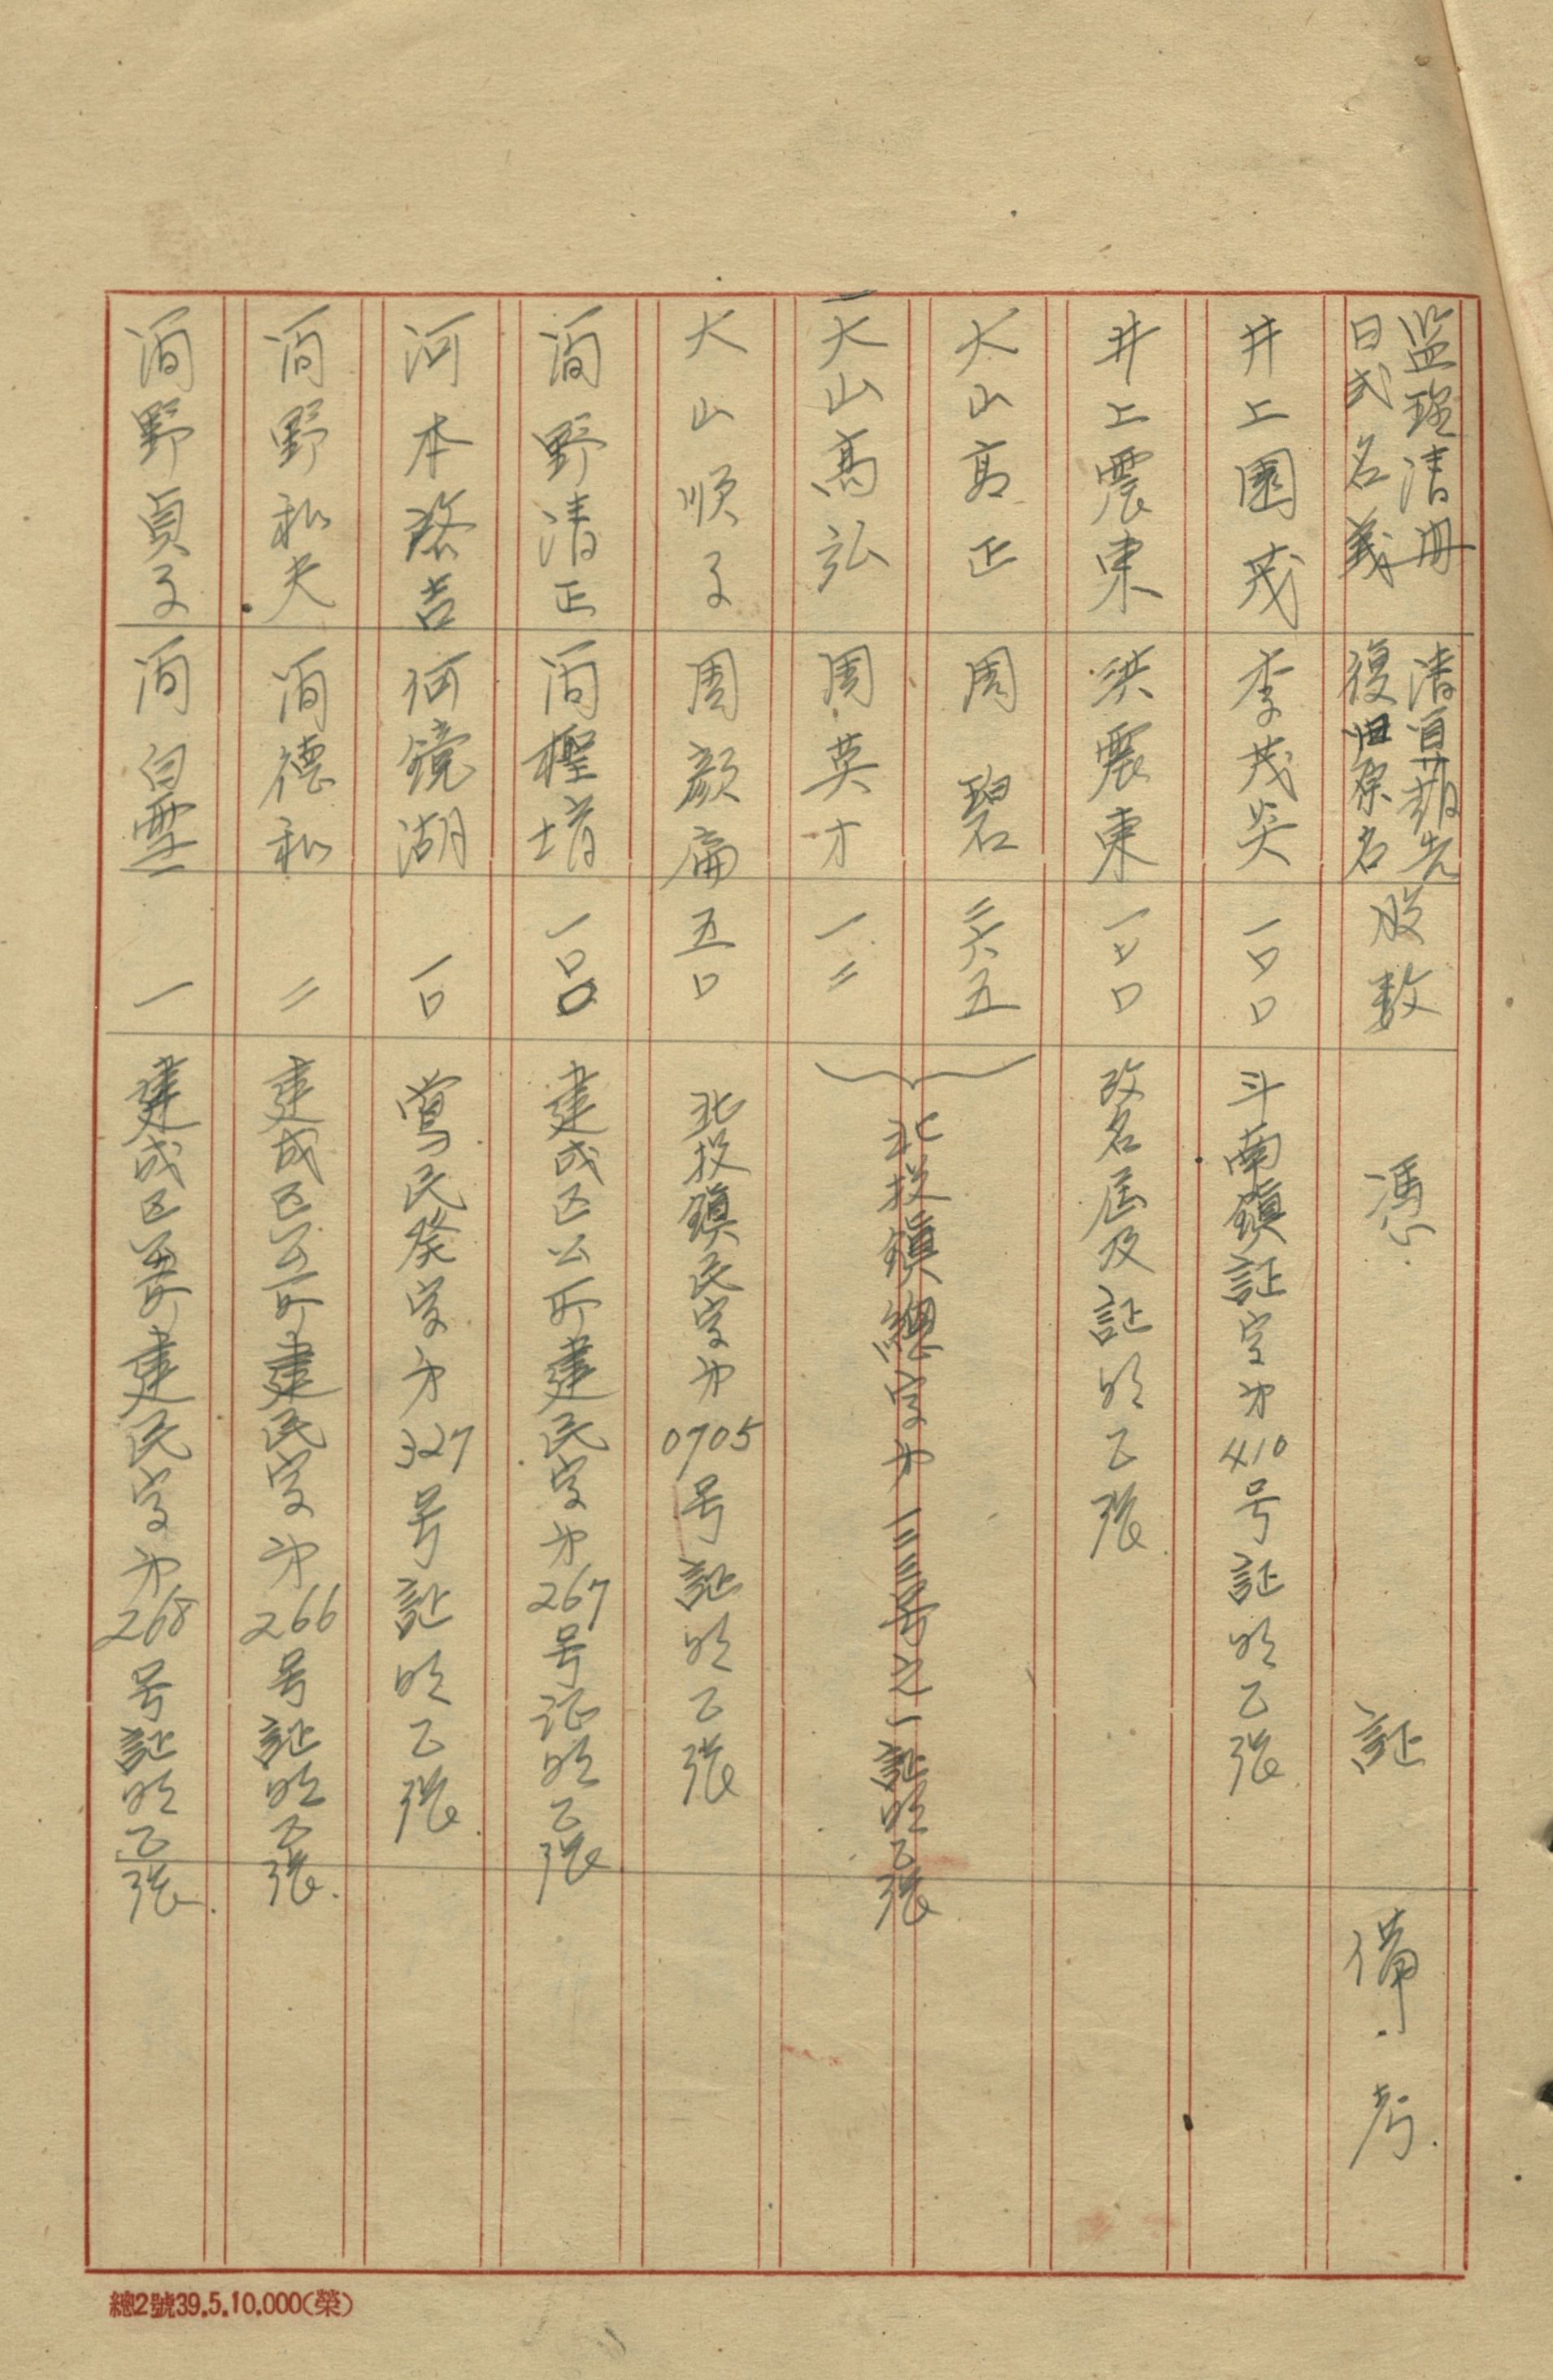 监理清册
日式名義
清理前先
復旧原名
股数
憑 証
備考
井上國茂 李茂炎 一〇〇 斗南鎮証字㐧410号証明乙張
井上震東 洪震東 一〇〇 改名届及証明乙張
大山高正 周碧 二六五
大山高弘 周英才 一二
北投鎮總字㐧一三三号之一証明乙張
大山順子 周顔扁 五〇 北投鎮民字㐧0705号証明乙張
簡野清正 簡檉堉 一〇〇 建成区公所建民字㐧267号证明乙張
河本啓吉 何鏡湖 一〇 鶯民發字㐧327号証明乙張
簡野和夫 簡德和 二 建成区公所建民字㐧266号証明乙張
簡野貞子 簡白雪 一 建成区公所建民字㐧268号証明乙張
總2號39.5.10.000(榮)